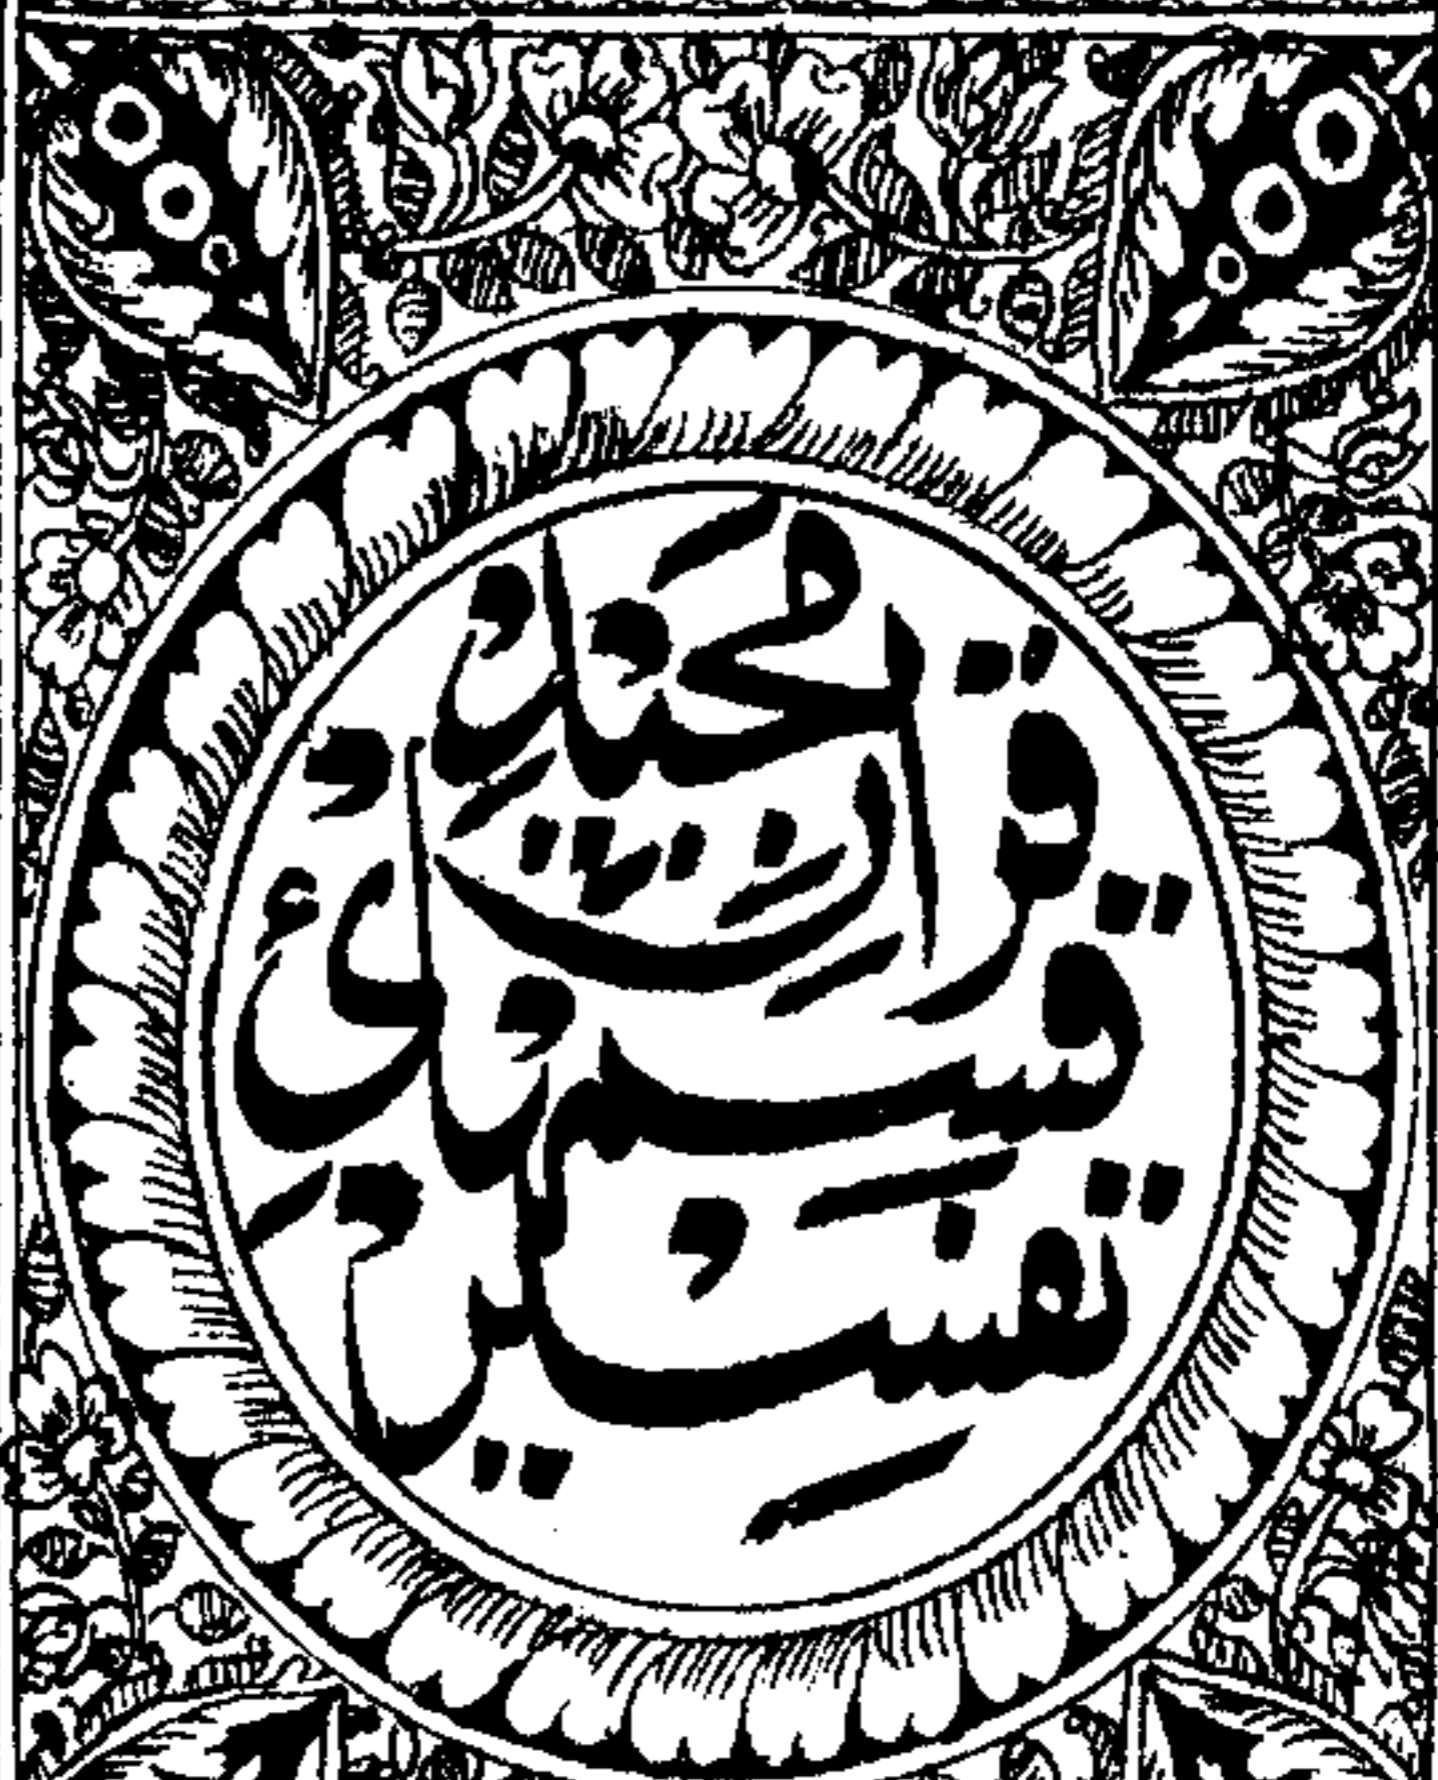 تفسیر
قسمهائ
قرآن مجید